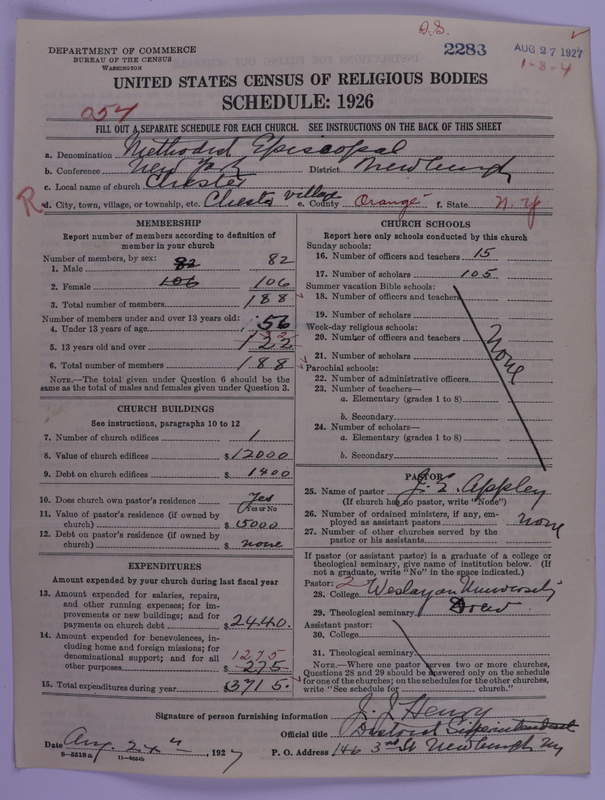 D.S.
2283
AUG 27 1927
1-8-4
DEPARTMENT OF COMMERCE
BUREAU OF THE CENSUS
WASHINGTON
UNITED STATES CENSUS OF RELIGIOUS BODIES
SCHEDULE: 1926
054
FILL OUT A SEPARATE SCHEDULE FOR EACH CHURCH. SEE INSTRUCTIONS ON THE BACK OF THIS SHEET
a. Denomination Methodist Episcopal
b. Conference New York District Newburgh
c. Local name of church Chester
R d. City, town, village, or township, etc. Chester village e. County Orange f. State N. Y
MEMBERSHIP
Report number of members according to definition of member in your church
Number of members, by sex:
1. Male 82 82
2. Female 106 106
3. Total number of members 188
Number of members under and over 13 years old:
4. Under 13 years of age 56
5. 13 years old and over 132
6. Total number of members 188
NOTE.—The total given under Question 6 should be the same as the total of males and females given under Question 3.
CHURCH BUILDINGS
See instructions, paragraphs 10 to 12
7. Number of church edifices 1
8. Value of church edifices $12000
9. Debt on church edifices $ 1400
10. Does church own pastor's residence Yes
(Yes or No)
11. Value of pastor's residence (if owned by church) $5000
12. Debt on pastor's residence (if owned by church) $ none
EXPENDITURES
Amount expended by your church during last fiscal year
13. Amount expended for salaries, repairs, and other running expenses; for improvements or new buildings; and for payments on church debt $2440.
14. Amount expended for benevolences, including home and foreign missions; for denominational support; and for all other purposes 1275 $275
15. Total expenditures during year $3715.
CHURCH SCHOOLS
Report here only schools conducted by this church
Sunday schools:
16. Number of officers and teachers 15
17. Number of scholars 105
Summer vacation Bible schools:
18. Number of officers and teachers
19. Number of scholars
Week-day religious schools:
20. Number of officers and teachers
21. Number of scholars
None
Parochial schools:
22. Number of administrative officers
23. Number of teachers—
a. Elementary (grades 1 to 8)
b. Secondary
24. Number of scholars—
a. Elementary (grades 1 to 8)
b. Secondary
PASTOR
25. Name of pastor J. E. Appley
(If church has no pastor, write "None")
26. Number of ordained ministers, if any, employed as assistant pastors none
27. Number of other churches served by the pastor or his assistants
If pastor (or assistant pastor) is a graduate of a college or theological seminary, give name of institution below. (If not a graduate, write "No" in the space indicated.)
Pastor: 2
28. College Wesleyan University
29. Theological seminary Drew
Assistant pastor:
30. College
31. Theological seminary
NOTE.—Where one pastor serves two or more churches, Questions 28 and 29 should be answered only on the schedule for one of the churches; on the schedules for the other churches, write "See schedule for ______ church."
Signature of person furnishing information J. J. Henry
Official title District Superintendent
Date Aug. 24th, 1927 P. O. Address 146 3rd St Newburgh NY
8—5518a 11—9554b